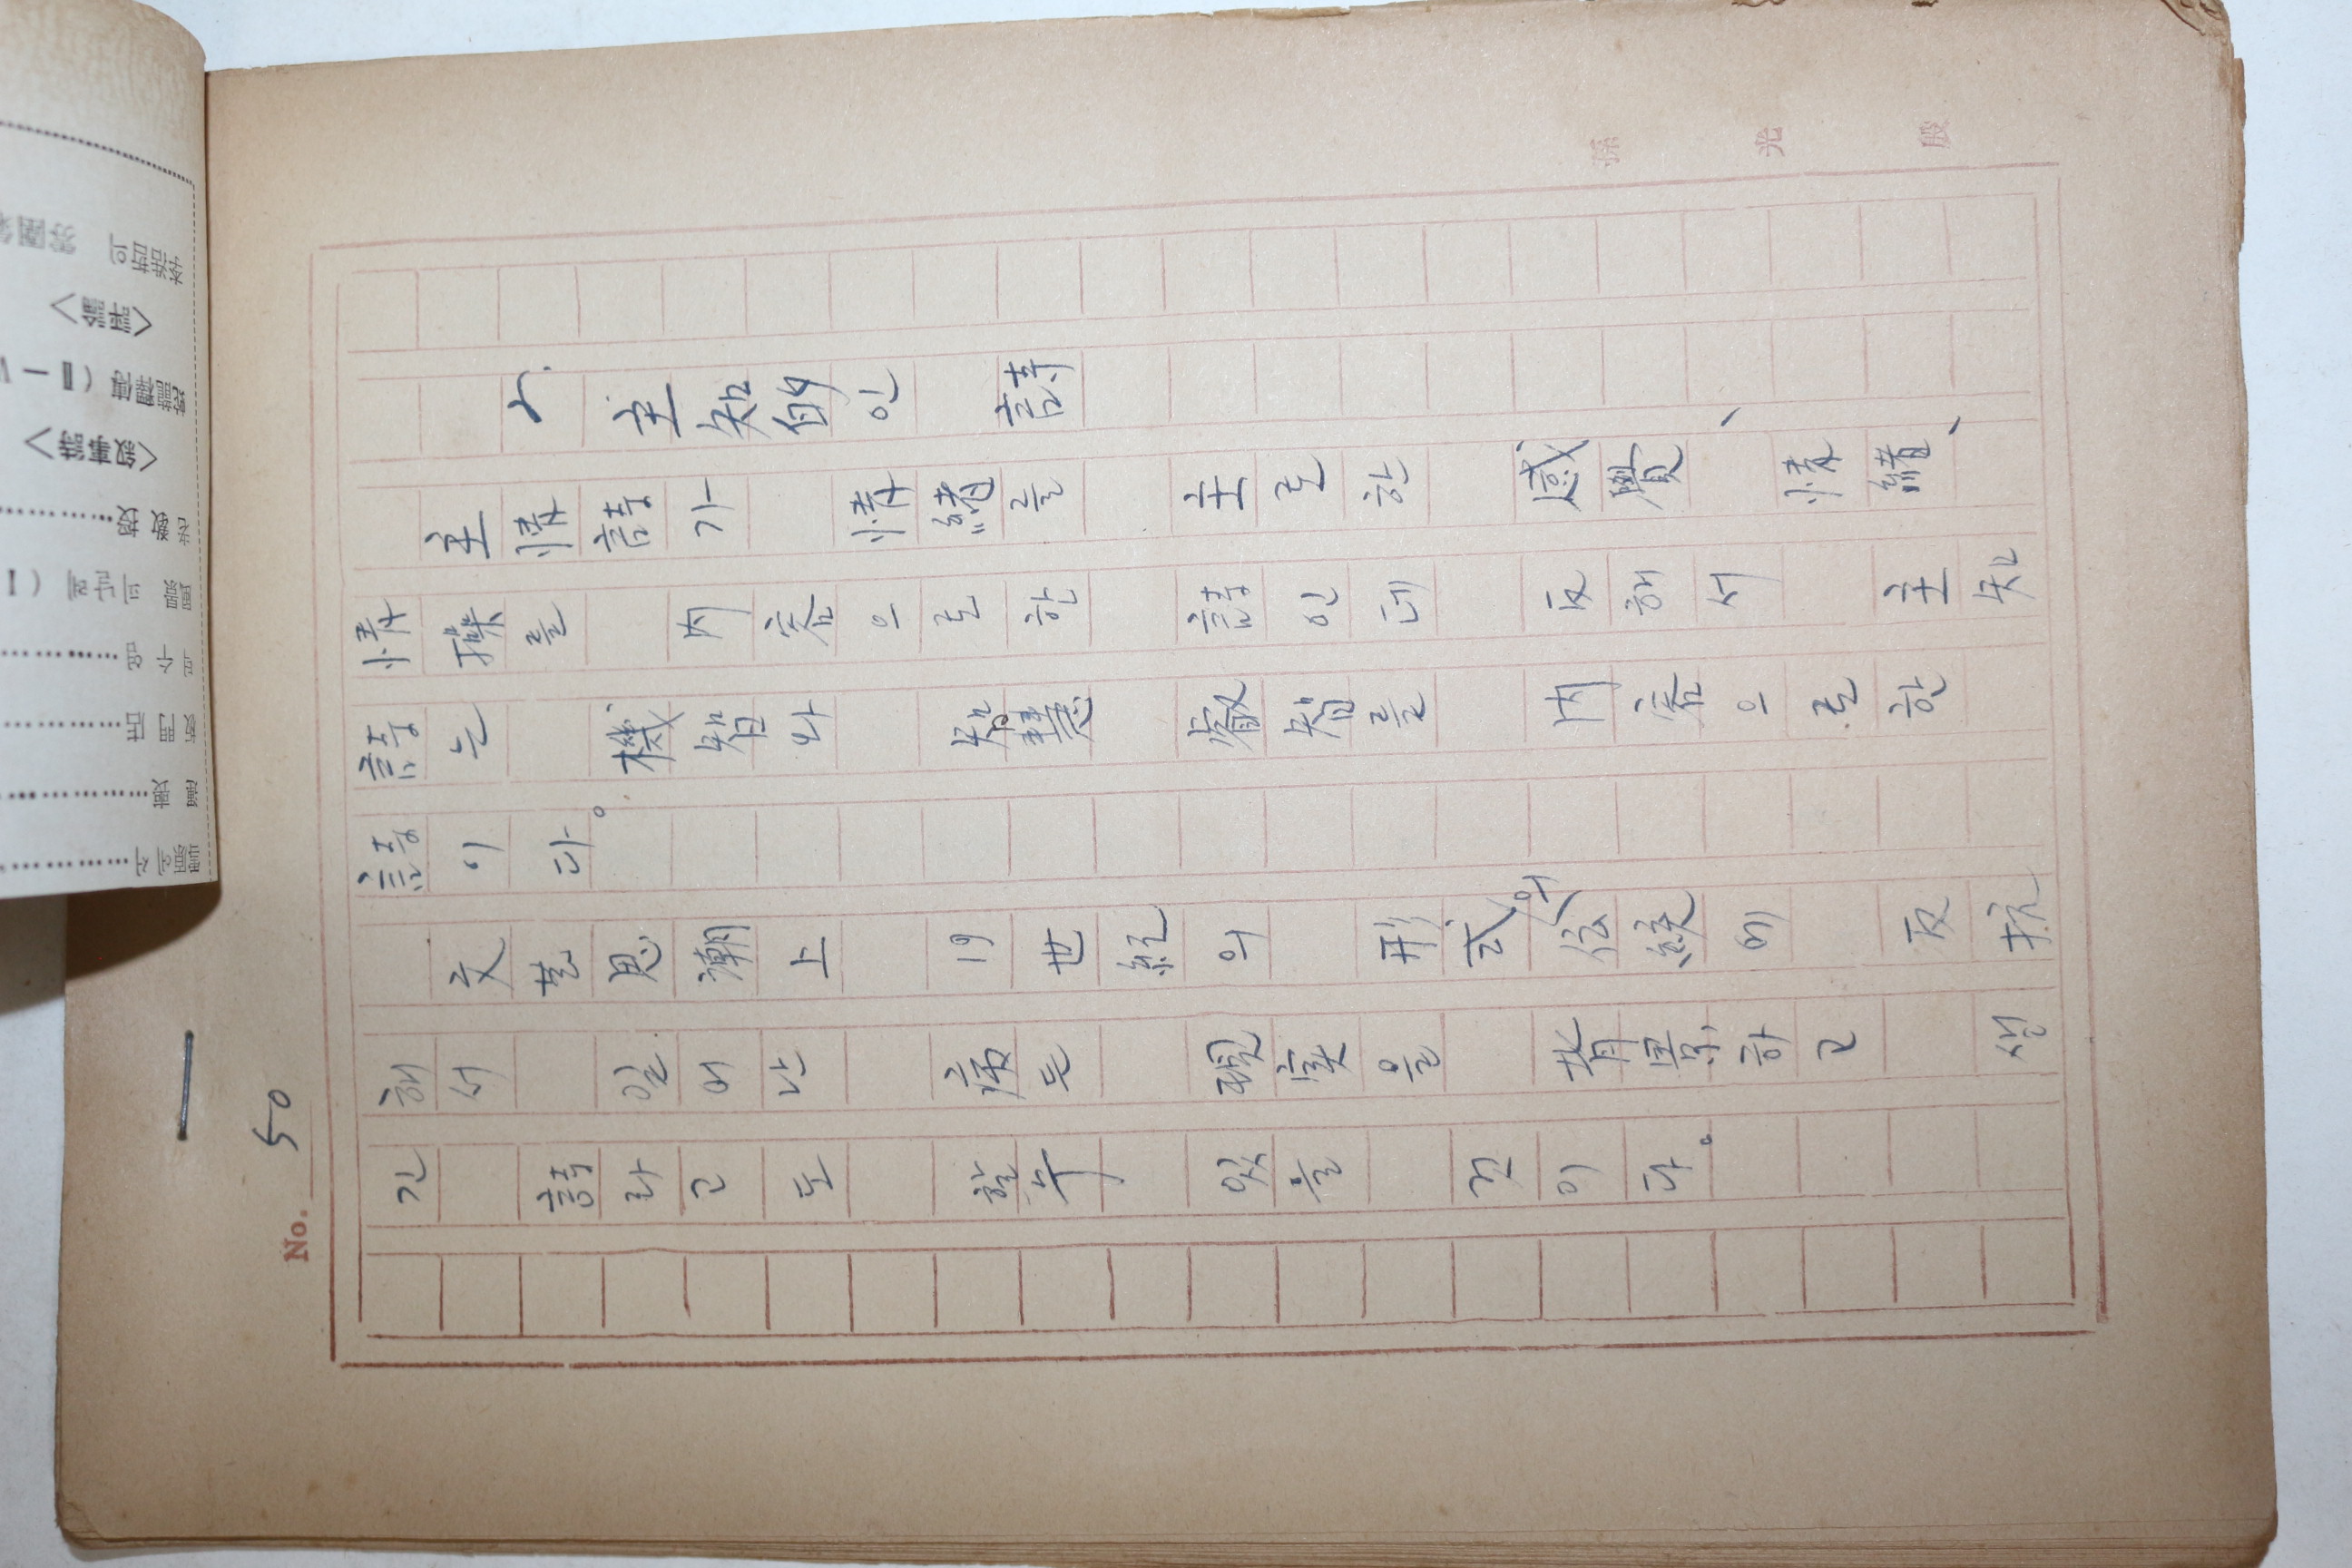 No. 50
2. 主知的인 詩
主情詩가 情緖를 主로한 感覺、情緖、
情操를 内容으로한 詩인데 反해서 主知
詩는 機智와 智慧 叡智를 内容으로한
詩이다。
文芸思潮上 19世紀의 形式의 伝統에 反抗
해서 일어난 病든 現実을 背景하고 생
긴 詩라고도 할수 있을 것이다。
孫 光 殷
雪原에 서
運 喪
板 門 店
風景 피날레 ( I
老 敎 授
<叙事詩>
蛇龍釋傳 ( Ⅱ —
<評論>
李浩哲의 雰圍